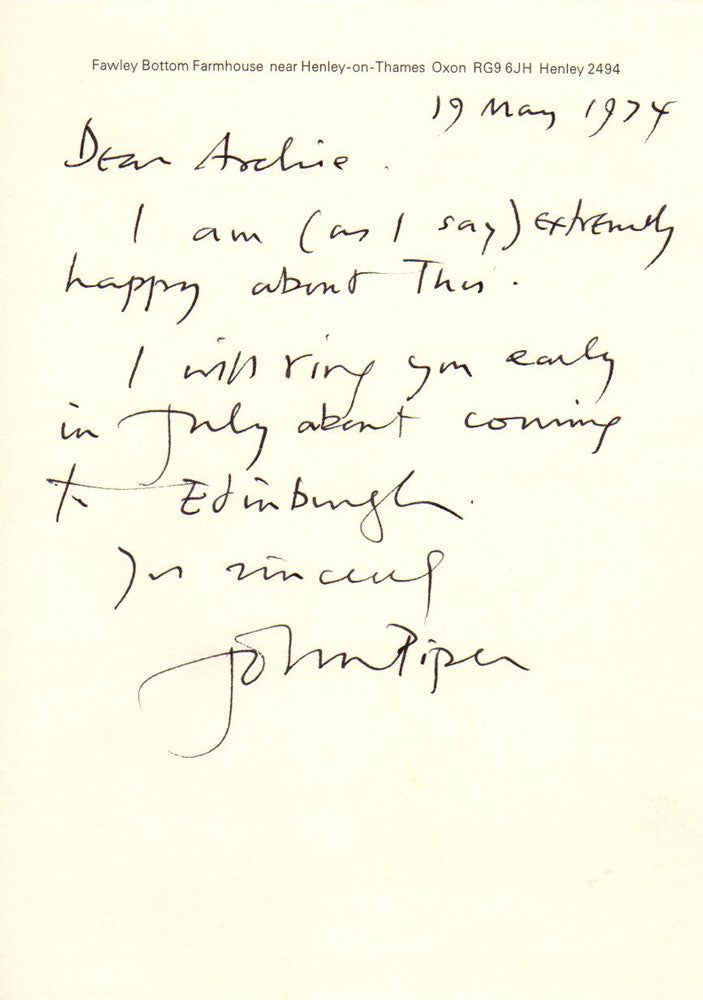 Fawley Bottom Farmhouse near Henley-on-Thames Oxon RG9 6JH Henley 2494
19 May 1974
Dear Archie.
I am (as I say) extremely
happy about This.
I will ring you early
in July about coming
to Edinburgh.
Yrs sincerely
John Piper